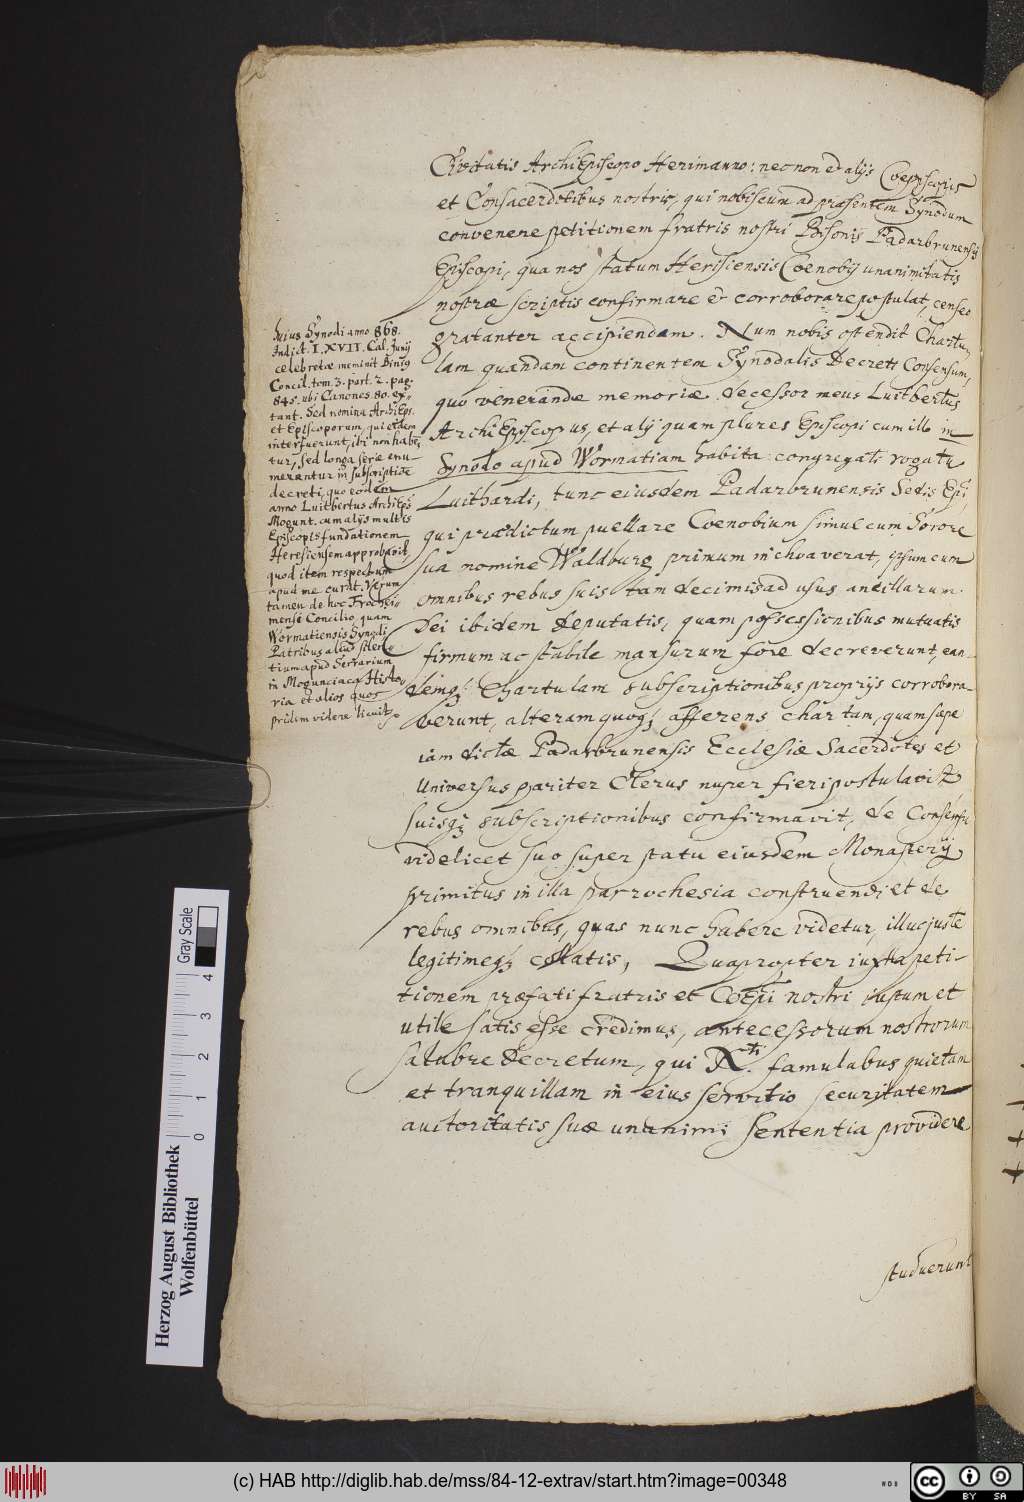 Civitatis ArchiEpiscopo Herimanno: necnon ed alijs Coepiscopis
et Consacerdotibus nostris, qui nobiscum ad præsentem Synodum
convenere petitionem fratris nostri Bosonis Padarbrunensis
Episcopi, qua nos statum Herisiensis Coenobij unanimitatis
nostræ scriptis confirmare & corroborare postulat, censeo
gratanter accipiendam. Nam nobis ostendit Chartu,
lam quandam continentem Synodalis Decreti Consensum,
quo venerandæ memoriæ decessor meus Luitbertus
ArchiEpiscopus, et alij quam plures Episcopi cum illo in
Synodo apud Wormatiam habita congregati rogatu
Luithardi, tunc eiusdem Padarbrunensis Sedis Epi,
qui prædictum puellare Coenobium simul cum Sorore
sua nomine Waldburg primum inchoaverat, ipsum cum
omnibus rebus suis tam decimis ad usus ancillarum
Dei ibidem deputatis, quam possessionibus mutuatis
firmum ac stabile mansurum fore decreverunt, ean-
demq; Chartulam subscriptionibus proprijs corrobora-
verunt, alteram quoq; afferens chartam, quam sæpe
iam dictæ Padarbrunensis Ecclesiæ Sacerdotes et
Universus pariter Clerus nuper fieri postulavit
suisq; subscriptionibus confirmavit, de Consensu
videlicet suo super statu eiusdem Monasterij
primitus in illa parrochesia construendi et de
rebus omnibus, quas nunc habere videtur, illuc juste
legitimeq; collatis, Quapropter iuxta peti-
tionem præfati fratris et Coepi nostri iustum et
utile satis esse credimus, antecessorum nostrorum
salubre decretum, qui X.sti famulabus quietam
et tranquillam in eius servitio securitatem
autoritatis suæ unanimi sententia providere
studuerunt
huius Synodi anno 868.
Indict. I. XVII. Cal. Junij
celebratæ meminit Binius
Concil. tom. 3. part. 2. pag.
845. ubi Canones 80. ex-
tant. Sed nomina ArchiEps.
et Episcoporum, qui eidem
interfuerunt, ibi non habe,
tur, sed longa serie enu
merantur in subscriptione
decreti, quo eodem
anno Luitbertus Archieps
Mogunt. cum alijs multis
Episcopis fundationem
Heresiensem approbavit,
quod item respectum
apud me curat. Verum
tamen de hoc
mense Concilio, quam
Wormatiensis Synodi
Patribus altus silen
tium apud Serrarium
in Mogunciaca Histo,
ria et alios quos
pridem videre licuit.
Herzog August Bibliothek
Wolfenbüttel
0 1 2 3 4
Gray Scale
(c) HAB http://diglib.hab.de/mss/84-12-extrav/start.htm?image=00348
WDB
cc BY SA